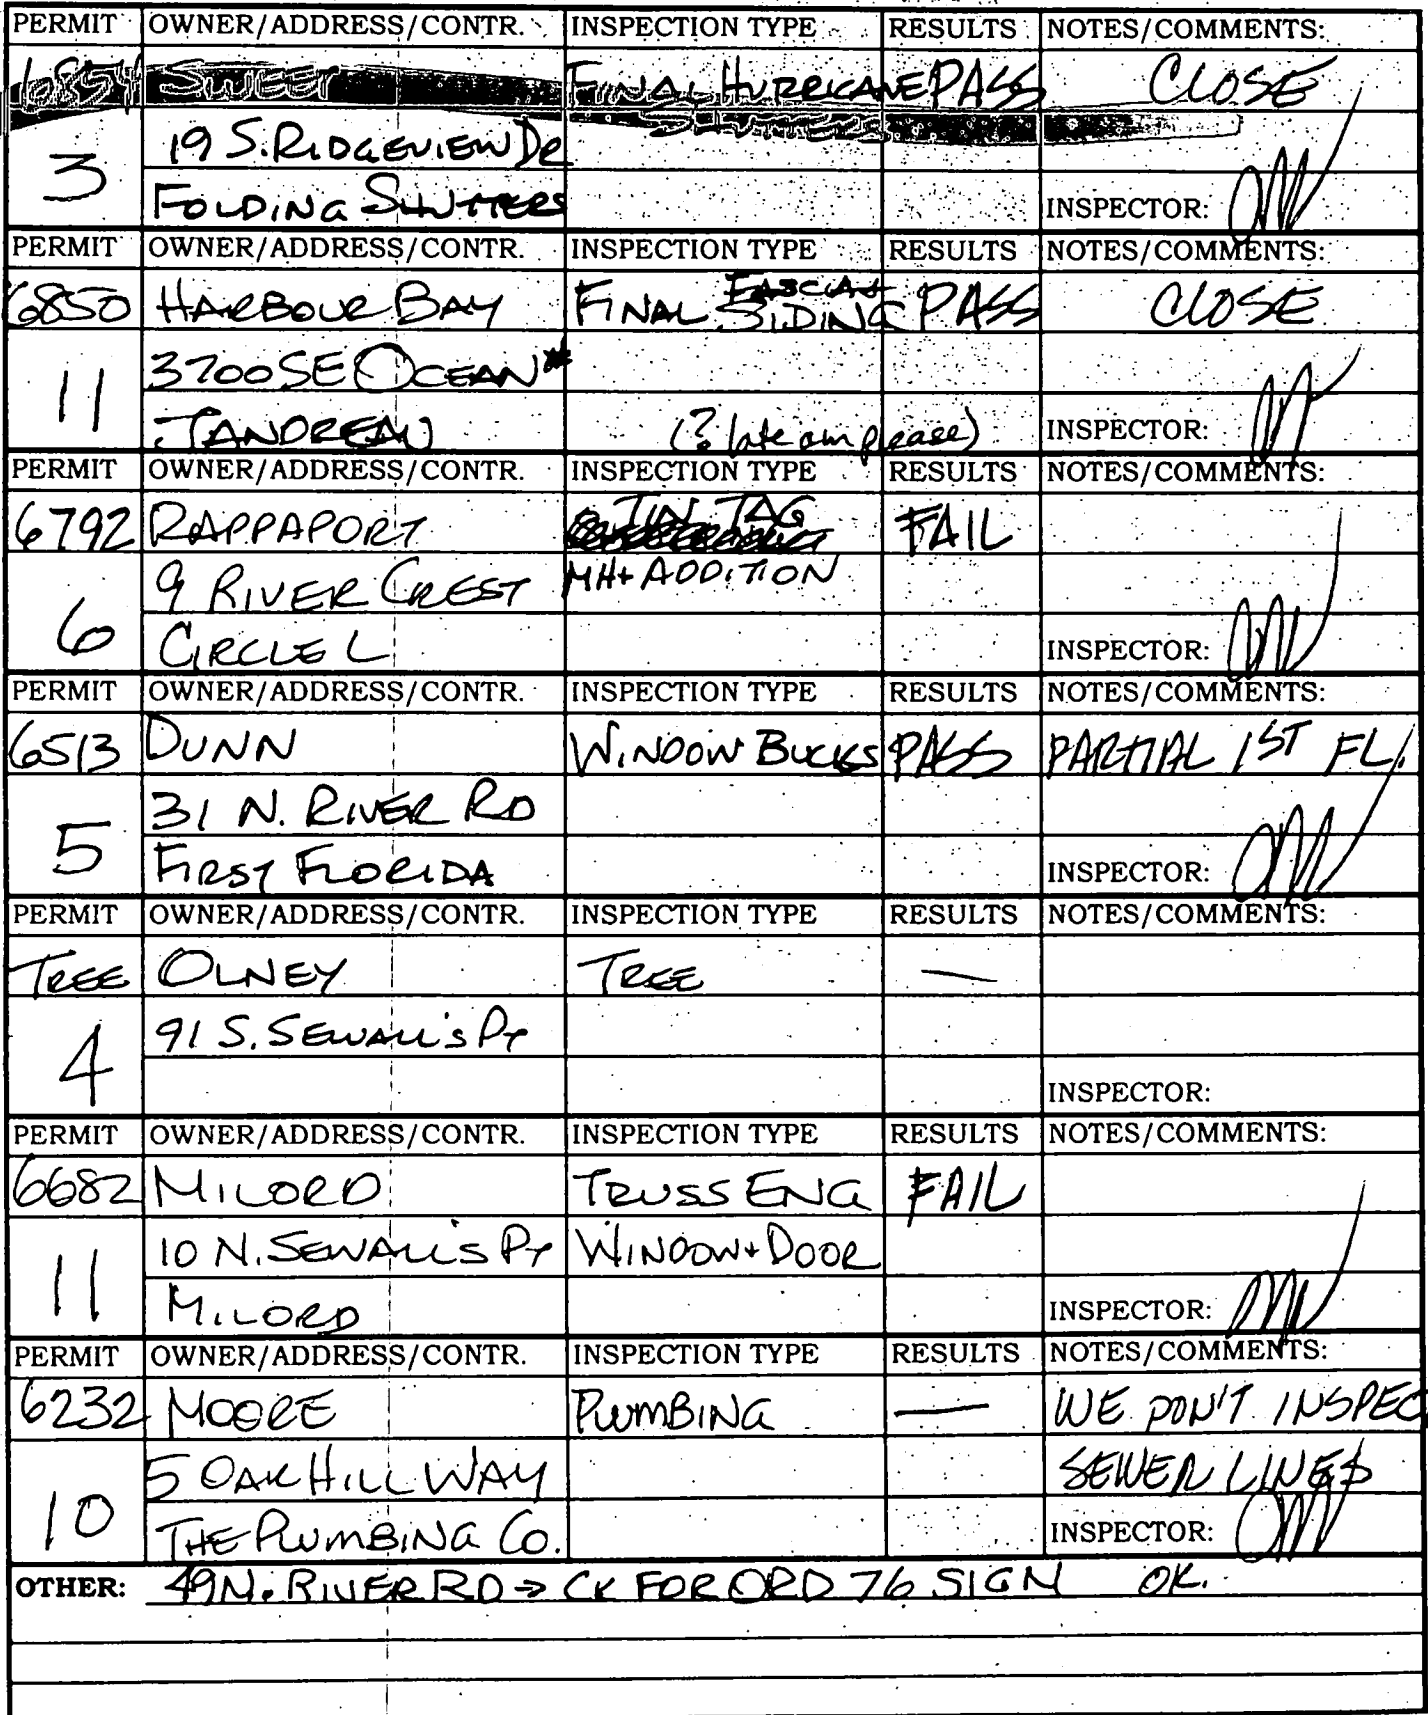 PERMIT OWNER/ADDRESS/CONTR. INSPECTION TYPE RESULTS NOTES/COMMENTS:
6854 SWEET FINAL HURRICANE PASS CLOSE
SHUTTERS
19 S. RIDGEVIEW DR
3
FOLDING SHUTTERS INSPECTOR:
PERMIT OWNER/ADDRESS/CONTR. INSPECTION TYPE RESULTS NOTES/COMMENTS:
6850 HARBOUR BAY FINAL FASCIA+ SIDING PASS CLOSE
3700 SE OCEAN*
11
TANDREAU (? late am please) INSPECTOR:
PERMIT OWNER/ADDRESS/CONTR. INSPECTION TYPE RESULTS NOTES/COMMENTS:
6792 RAPPAPORT TIN TAG FAIL
9 RIVER CREST MH+ ADDITION
6
CIRCLE L INSPECTOR:
PERMIT OWNER/ADDRESS/CONTR. INSPECTION TYPE RESULTS NOTES/COMMENTS:
6513 DUNN WINDOW BUCKS PASS PARTIAL 1ST FL.
31 N. RIVER RD
5
FIRST FLORIDA INSPECTOR:
PERMIT OWNER/ADDRESS/CONTR. INSPECTION TYPE RESULTS NOTES/COMMENTS:
TREE OLNEY TREE —
91 S. SEWALL'S PT
4
INSPECTOR:
PERMIT OWNER/ADDRESS/CONTR. INSPECTION TYPE RESULTS NOTES/COMMENTS:
6682 MILORD TRUSS ENG FAIL
10 N. SEWALL'S PT WINDOW+DOOR
11
MILORD INSPECTOR:
PERMIT OWNER/ADDRESS/CONTR. INSPECTION TYPE RESULTS NOTES/COMMENTS:
6232 MOORE PLUMBING — WE DON'T INSPEC
5 OAK HILL WAY SEWER LINES
10
THE PLUMBING CO. INSPECTOR:
OTHER: 49 N. RIVER RD → CK FOR ORD 76 SIGN OK.